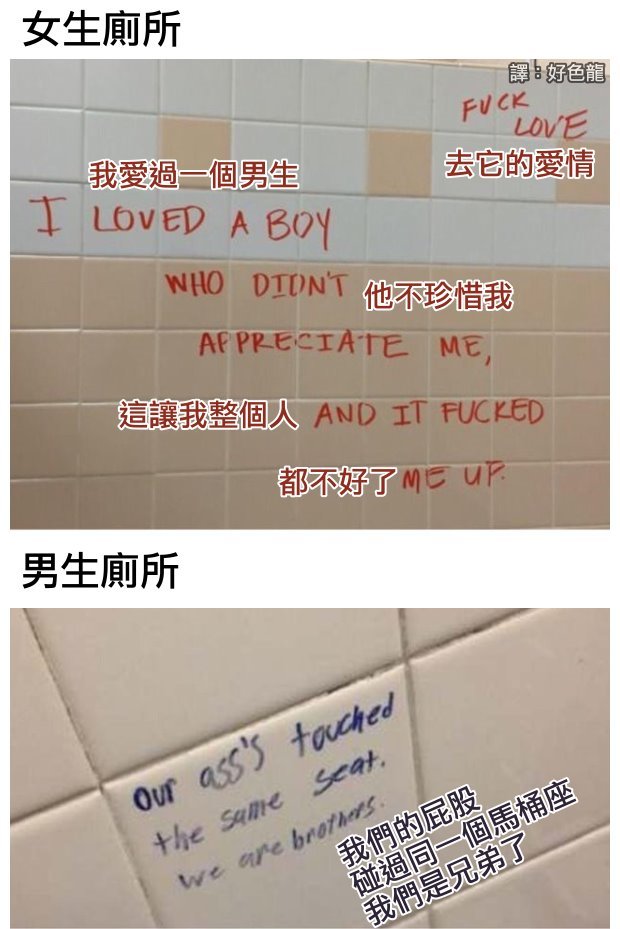 女生廁所
譯：好色龍
FUCK
LOVE
去它的愛情
我愛過一個男生
I LOVED A BOY
WHO DIDN'T 他不珍惜我
APPRECIATE ME,
這讓我整個人 AND IT FUCKED
都不好了 ME UP.
男生廁所
our ass's touched
the same seat.
we are brothers.
我們的屁股
碰過同一個馬桶座
我們是兄弟了